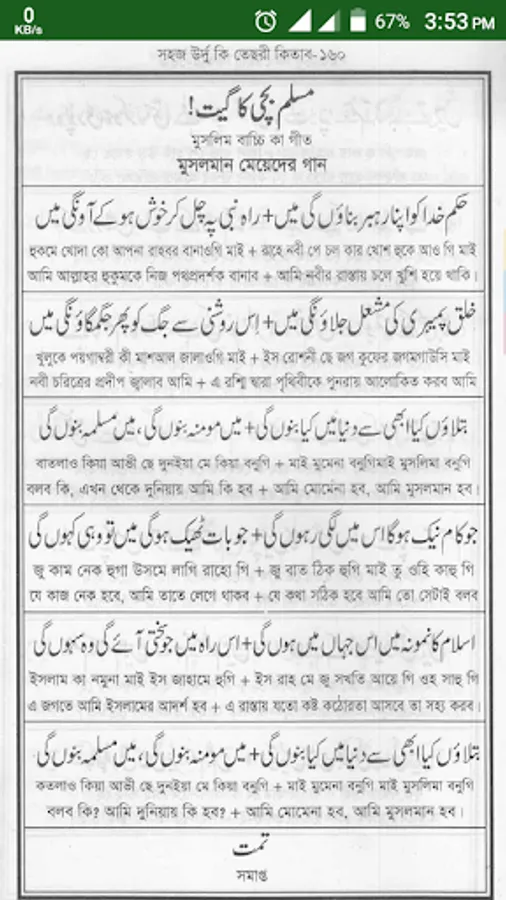 0
KB/s
67%
3:53 PM
সহজ উর্দু কি তেছরী কিতাব-১৬০
مسلم بچی کا گیت!
মুসলিম বাচ্চি কা গীত
মুসলমান মেয়েদের গান
حکم خدا کو اپنا رہبر بناؤں گی میں + راہ نبی پہ چل کر خوش ہو کے آونگی میں
হুকমে খোদা কো আপনা রাহবর বানাওগি মাই + রাহে নবী পে চল কার খোশ হুকে আও গি মাই
আমি আল্লাহর হুকুমকে নিজ পথপ্রদর্শক বানাব + আমি নবীর রাস্তায় চলে খুশি হয়ে থাকি।
خلق پیمبری کی مشعل جلاؤنگی میں + اس روشنی سے جگ کو پھر جگمگاؤنگی میں
খুলুকে পয়গাম্বরী কী মাশআল জালাওগি মাই + ইস রোশনী ছে জগ কুফের জগমগাউসি মাই
নবী চরিত্রের প্রদীপ জ্বালাব আমি + এ রশ্মি দ্বারা পৃথিবীকে পুনরায় আলোকিত করব আমি
بتلاؤں کیا ابھی سے دنیا میں کیا بنوں گی + میں مومنہ بنوں گی، میں مسلمہ بنوں گی
বাতলাও কিয়া আভী ছে দুনইয়া মে কিয়া বনুগি + মাই মুমেনা বনুগিমাই মুসলিমা বনুগি
বলব কি, এখন থেকে দুনিয়ায় আমি কি হব + আমি মোমেনা হব, আমি মুসলমান হব।
جو کام نیک ہوگا اس میں لگی رہوں گی + جو بات ٹھیک ہوگی میں تو وہی کہوں گی
জু কাম নেক হুগা উসমে লাগি রাহো গি + জু বাত ঠিক হুগি মাই তু ওহি কাহু গি
যে কাজ নেক হবে, আমি তাতে লেগে থাকব + যে কথা সঠিক হবে আমি তো সেটাই বলব
اسلام کا نمونہ میں اس جہاں میں ہوں گی + اس راہ میں جو سختی آئے گی وہ سہوں گی
ইসলাম কা নমুনা মাই ইস জাহামে হুগি + ইস রাহ মে জু সখতি আয়ে গি ওহ সাহু গি
এ জগতে আমি ইসলামের আদর্শ হব + এ রাস্তায় যতো কষ্ট কঠোরতা আসবে তা সহ্য করব।
بتلاؤں کیا ابھی سے دنیا میں کیا بنوں گی + میں مومنہ بنوں گی، میں مسلمہ بنوں گی
কতলাও কিয়া আভী ছে দুনইয়া মে কিয়া বনুগি + মাই মুমেনা বনুগি মাই মুসলিমা বনুগি
বলব কি? আমি দুনিয়ায় কি হব? + আমি মোমেনা হব, আমি মুসলমান হব।
تمت
সমাপ্ত